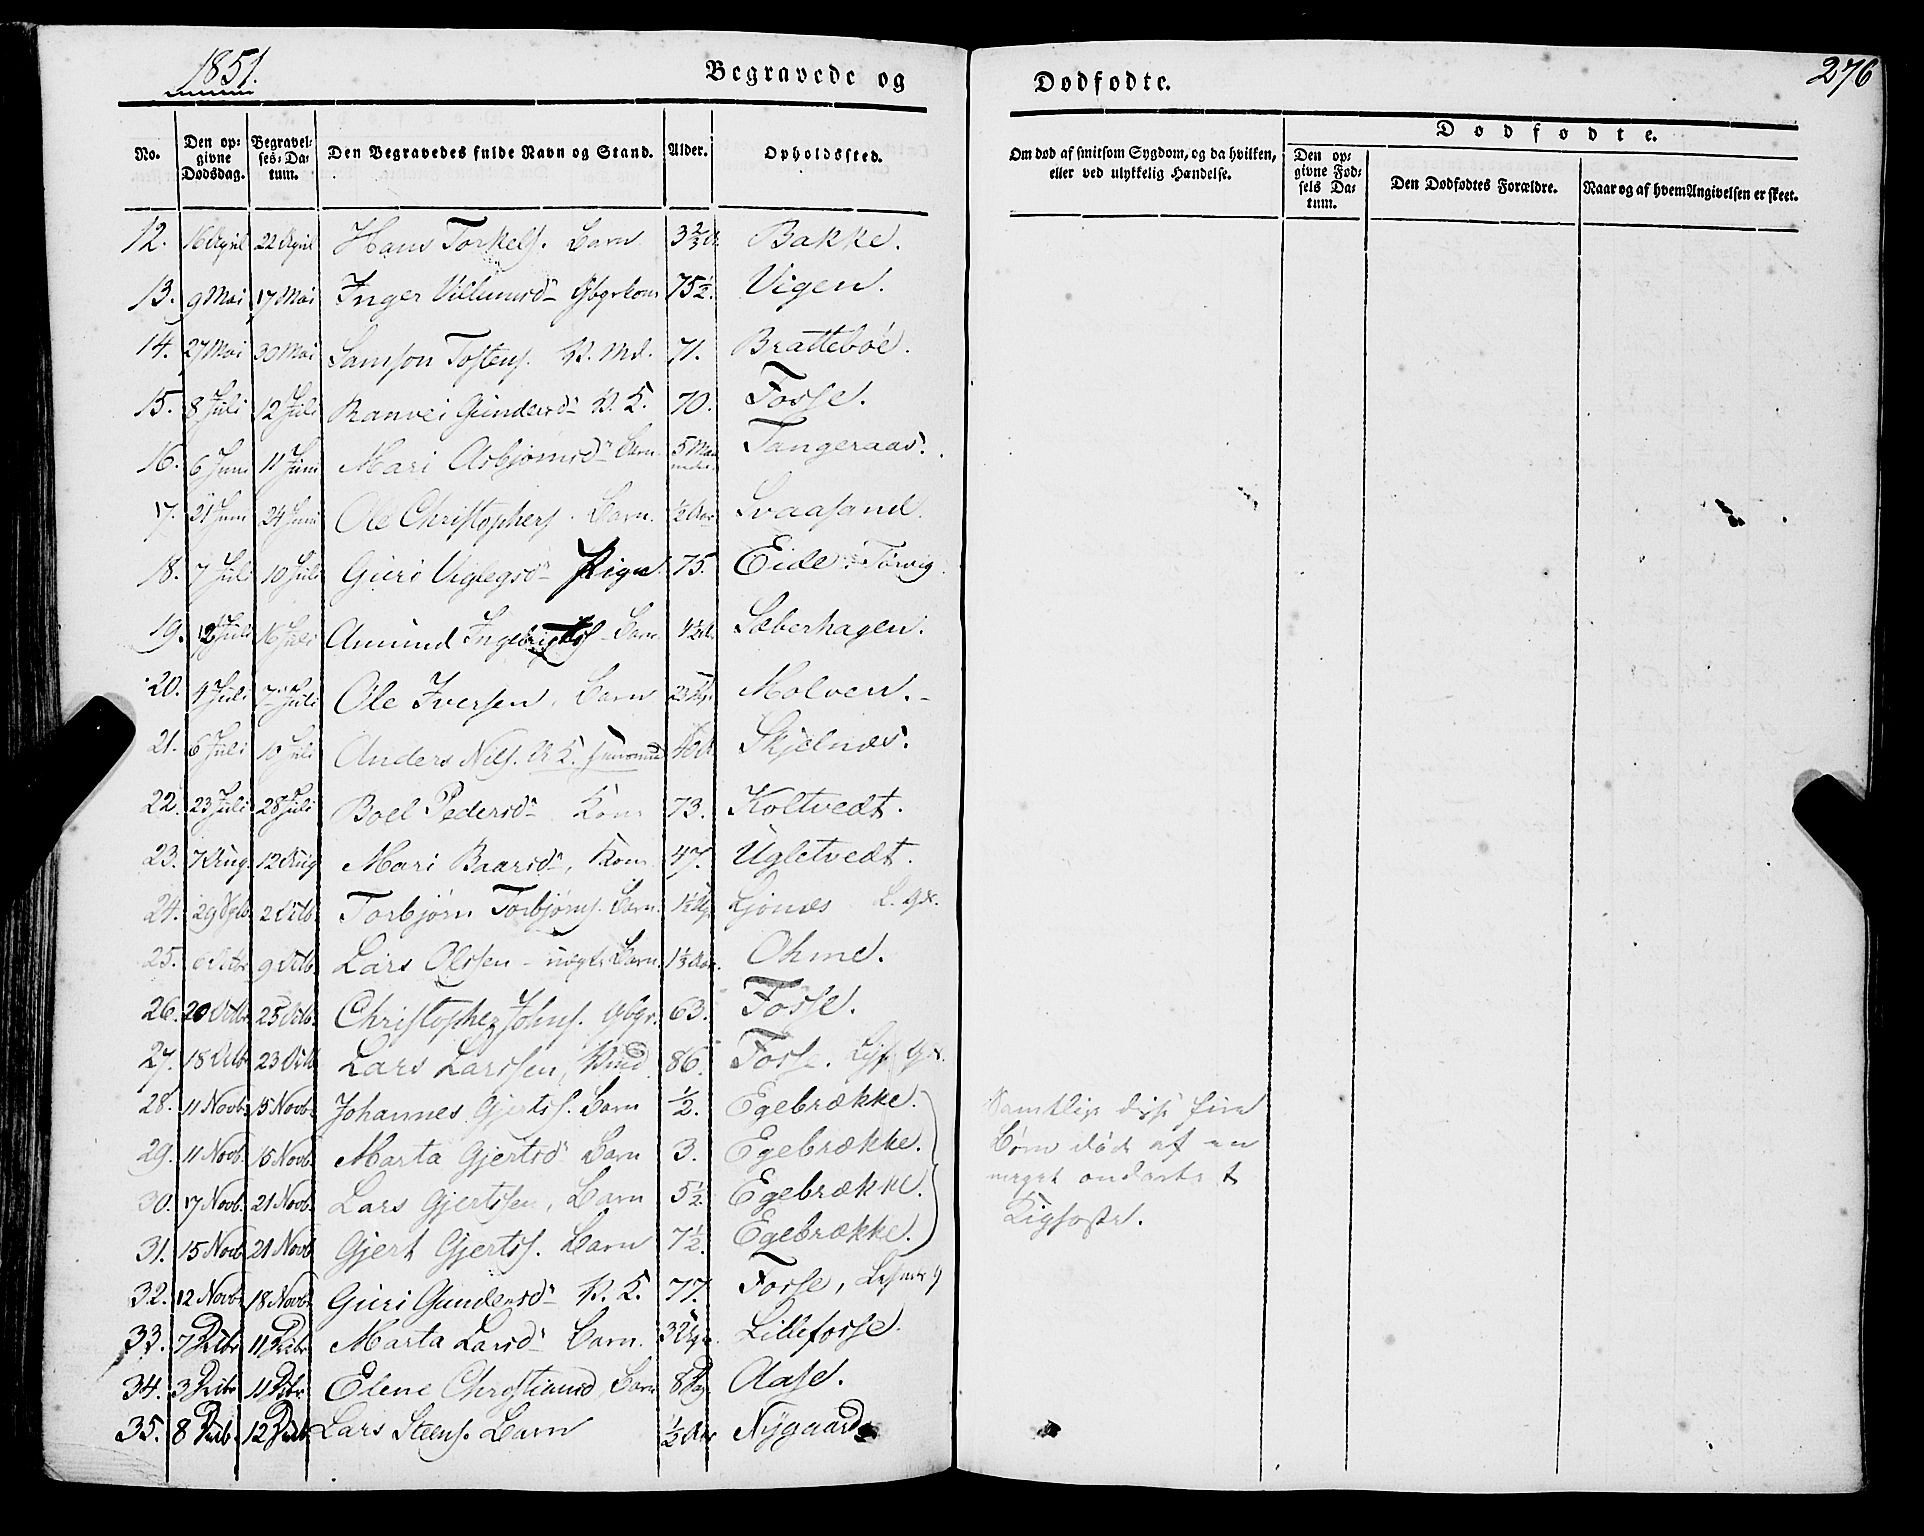 1851.
Begravede og Dødfødte.
276
No. Den opgivne Dødsdag. Begravelses-Datum. Den Begravedes fulde Navn og Stand. Alder. Opholdssted.
Om død af smitsom Sygdom, og da hvilken, eller ved ulykkelig Hændelse. Dødfødte. Den opgivne Fødsels Datum. Den Dødfødtes Forældre. Naar og af hvem Angivelsen er skeet.
12. 16 April 22 April Hans Torkels. Barn 3 2/3 A. Bakke.
13. 9 Mai 17 Mai Inger Villumsd. Gbgrkone 75 1/2. Vigen.
14. 27 Mai 30 Mai Samson Tostens. V. Md. 71. Brattebøe.
15. 8 Juli 12 Juli Ranvei Gundersd. V. K. 70. Fosse.
16. 6 Juni 11 Juni Mari Asbjørnsd. Barn 5 Maaneder Tangeraas.
17. 21 Juni 24 Juni Ole Christophers. Barn. 1/2 Aar Svaasand.
18. 7 Juli 10 Juli Guri Viglegsd. Pige. 75. Eide i Tørvig.
19. 12 Juli 16 Juli Amund Ingebrigts. Barn Sæberhagen.
20. 4 Juli 7 Juli Ole Iversen, Barn Molven.
21. 6 Juli 10 Juli Anders Nels. Skjelnæs.
22. 23 Juli 28 Juli Boel Pedersd. Kone 73. Koltvedt.
23. 7 Aug. 12 Aug. Mari Baarsd., Kone 47. Ugletvedt.
24. 29 Sptb. 2 Octb. Torbjørn Torbjørns. Barn. Ljones
25. 6 Octbr 9 Octb. Lars Olssen uægte Barn. 1 1/3 Aar. Ohme.
26. 20 Octbr 25 Octb. Christopher Johns. Gbgr. 63. Fosse.
27. 18 Octbr 23 Octb Lars Larssen, 86. Fosse.
28. 11 Novbr 15 Novbr Johannes Gjerts. Barn 1/2. Egebrække.
29. 11 Novb. 15 Novb. Marta Gjertsd. Barn 3. Egebrække.
30. 17 Novb. 21 Novb. Lars Gjertssen, Barn 5 1/2. Egebrække.
31. 15 Novb. 21 Novb. Gjert Gjerts. Barn 7 1/2. Egebrække.
Samtlige disse fire
Børn døde af en
meget ondartet
Kighoste.
32. 12 Novbr 18 Novbr Guri Gundersd. V. K. 77. Fosse,
33. 7 Dcbr. 11 Dcbr. Marta Larsd. Barn. 3 Uger Lillefosse.
34. 3 Dcbr 11 Dcbr. Elene Christiansd. Barn 8 Dg. Aase.
35. 8 Dcb. 12 Dcb. Lars Steens. Barn 1/2 Aar Nygaard